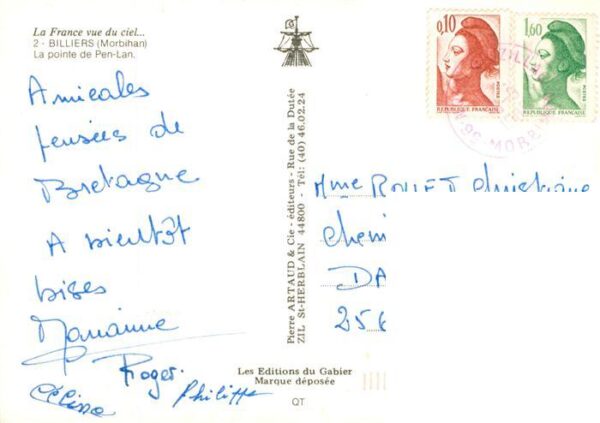 La France vue du ciel...
2 - BILLIERS (Morbihan)
La pointe de Pen-Lan.
Amicales
pensées de
Bretagne
A bientôt
bises
Marianne
Roger.
Philippe
0,10
POSTES
REPUBLIQUE FRANÇAISE
1,60
POSTES
REPUBLIQUE FRANÇAISE
56-MORB
Pierre ARTAUD & Cie - éditeurs - Rue de la Dutée
ZIL St-HERBLAIN 44800 - Tél: (40) 46.02.24
Mme
Chemi
DA
256
Les Editions du Gabier
Marque déposée
QT